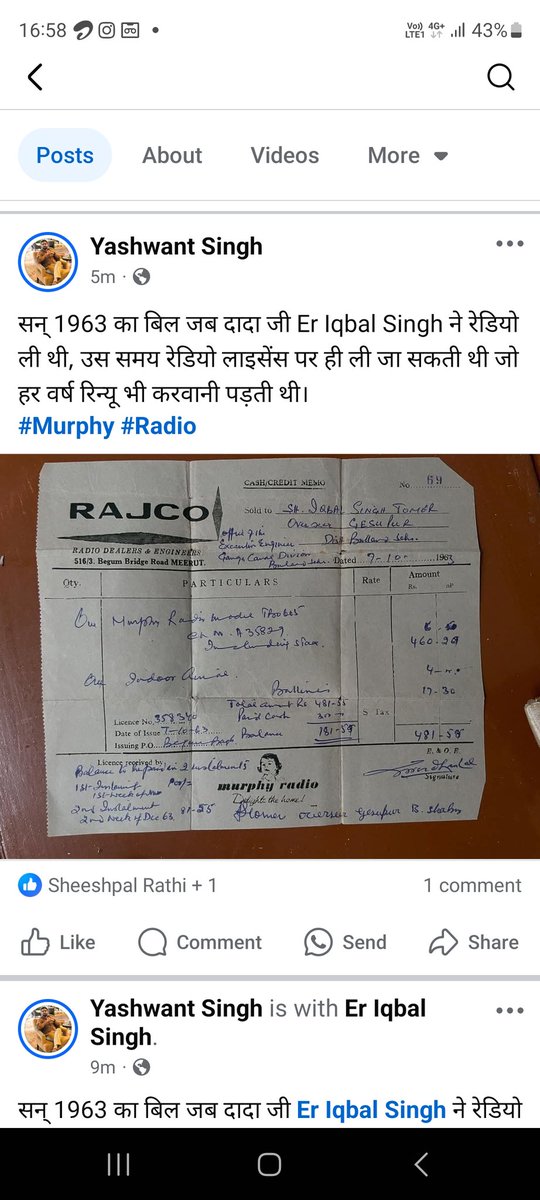 16:58
Vo)) 4G+
LTE1
43%
Posts
About
Videos
More
Yashwant Singh
5m
सन् 1963 का बिल जब दादा जी Er Iqbal Singh ने रेडियो
ली थी, उस समय रेडियो लाइसेंस पर ही ली जा सकती थी जो
हर वर्ष रिन्यू भी करवानी पड़ती थी।
#Murphy #Radio
CASH/CREDIT MEMO
No. 69
RAJCO
Sold to Sh. IQBAL SINGH TOMER
Overseer GESUPUR
office of the
Executive Engineer
Ganga Canal Division
RADIO DEALERS & ENGINEERS
516/3. Begum Bridge Road MEERUT.
Dated 7-10- 1963
Qty.
PARTICULARS
Rate
Amount
Rs. nP
One Murphy Radio model
Including
460-29
One Indoor
17-30
Total amount Rs 481-55
Licence No. 358340
Paid Cash
S Tax
Date of Issue 7-10-63
Balance 181-55
481-55
Issuing P.O.
E. & O. E.
Licence received by
Balance to be paid in 2 instalments
1st Instalment
murphy radio
Delights the home!
Signature
2nd Instalment 81-55
2nd week of Dec 63
overseer Gesupur
Sheeshpal Rathi + 1
1 comment
Like
Comment
Send
Share
Yashwant Singh is with Er Iqbal
Singh.
9m
सन् 1963 का बिल जब दादा जी Er Iqbal Singh ने रेडियो